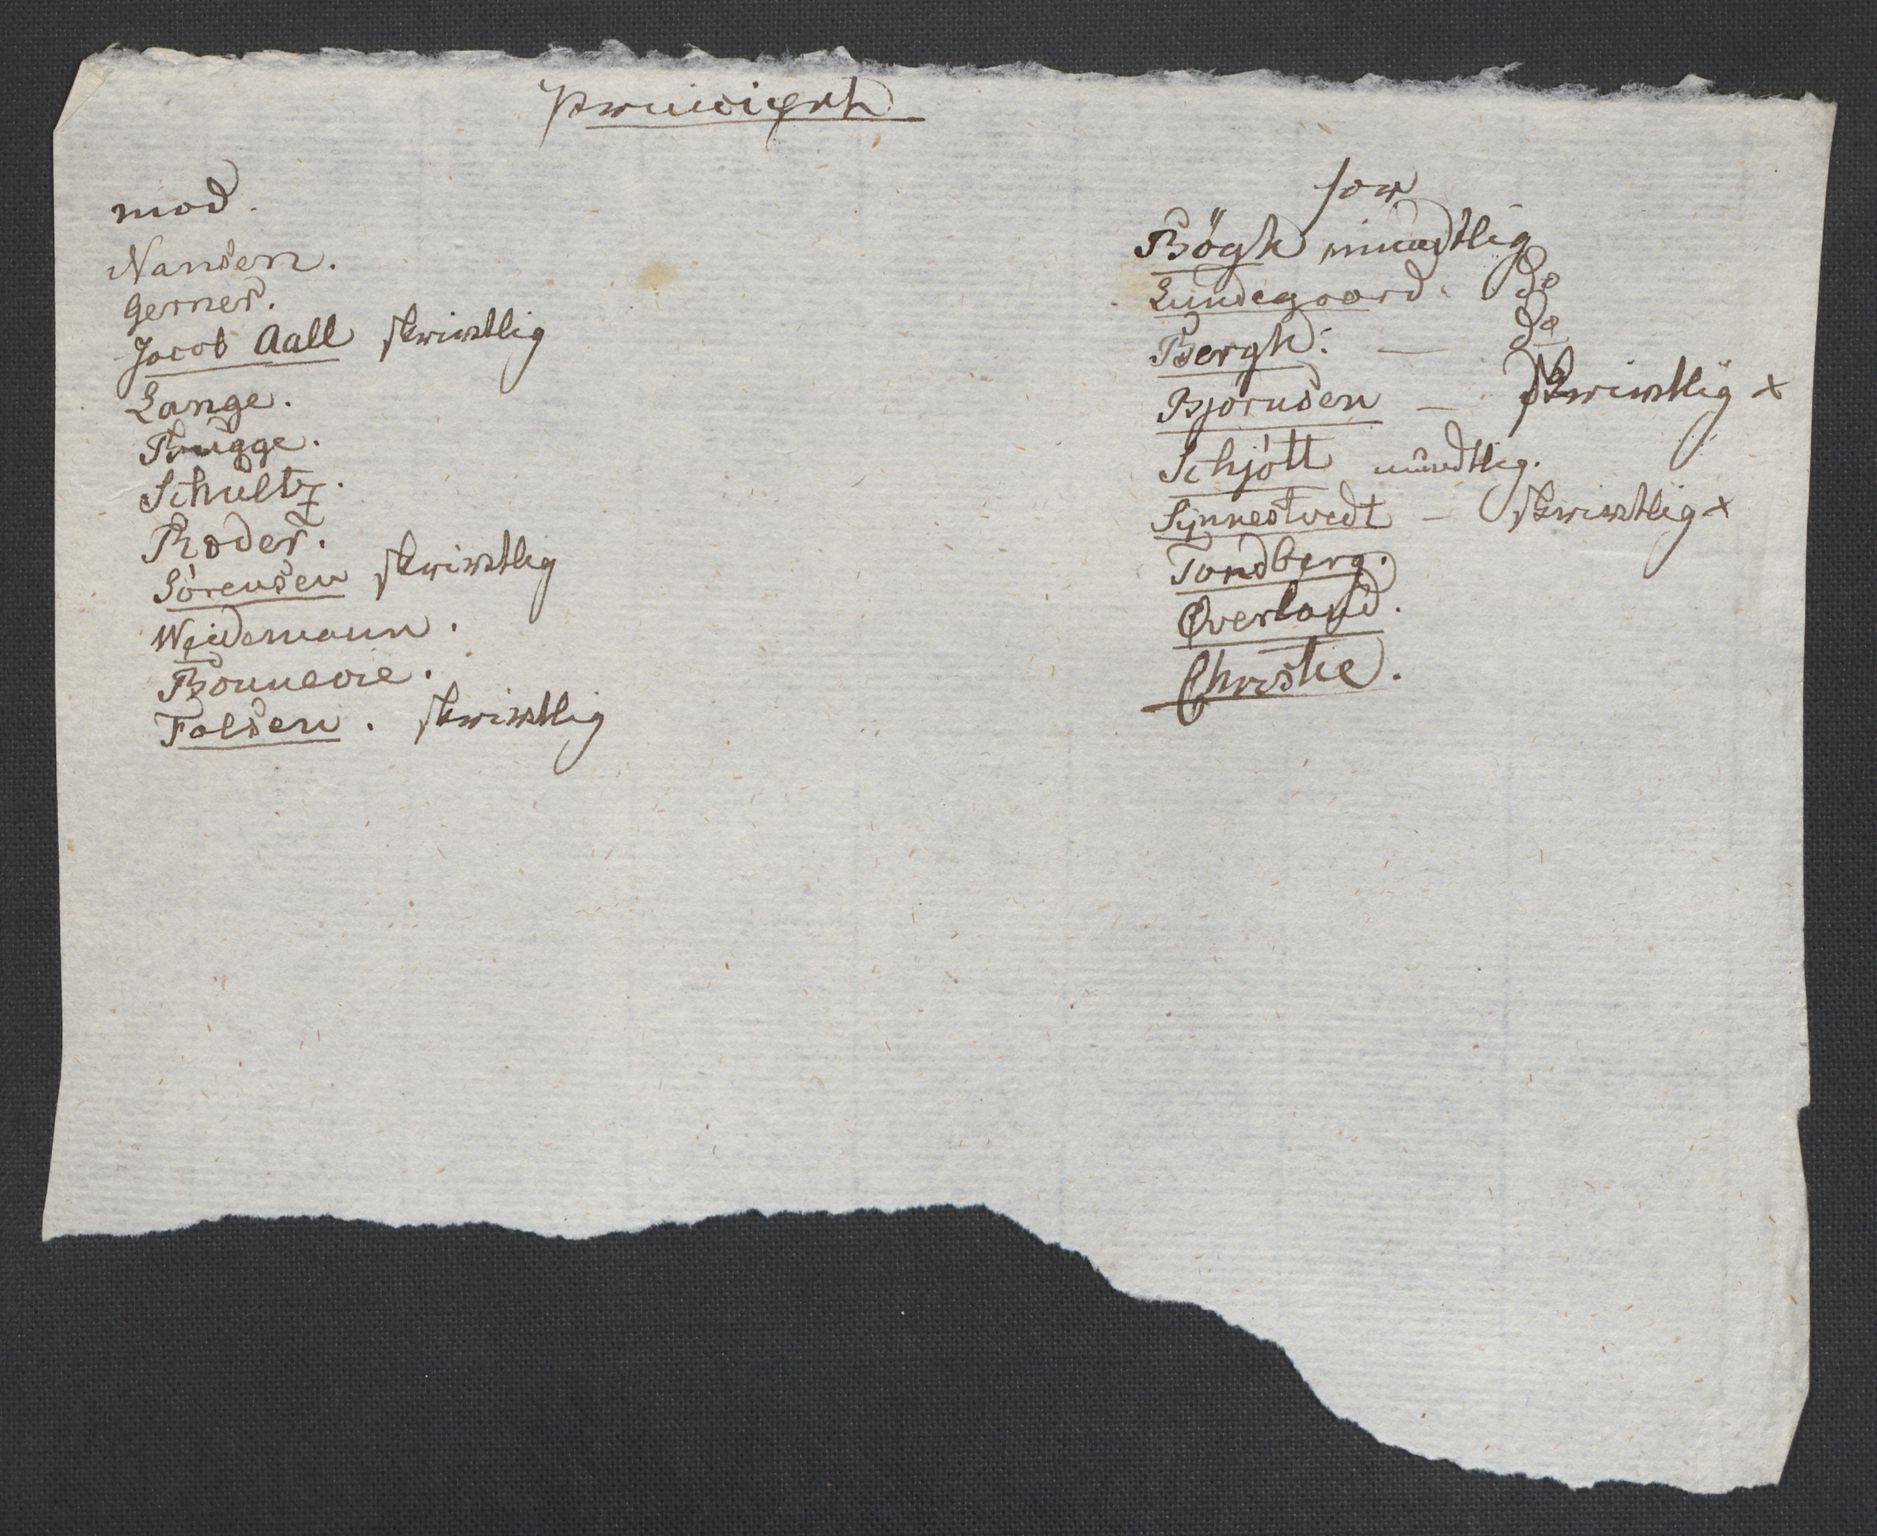 mod.
Nansen.
Gerner.
Jacob Aall skrivtlig
Lange.
Brugge.
Schultz.
Roder.
Sörensen skrivtlig
Weidemann.
Bonnevie.
Falsen. skrivtlig
for
Bögh mundtlig
Lundegaard. do
Bergh. — do
Bjornsen — skrivtlig x
Schjött mundtlig.
Synnestvedt — skrivtlig x
Tondberg.
Øverland.
Christie.